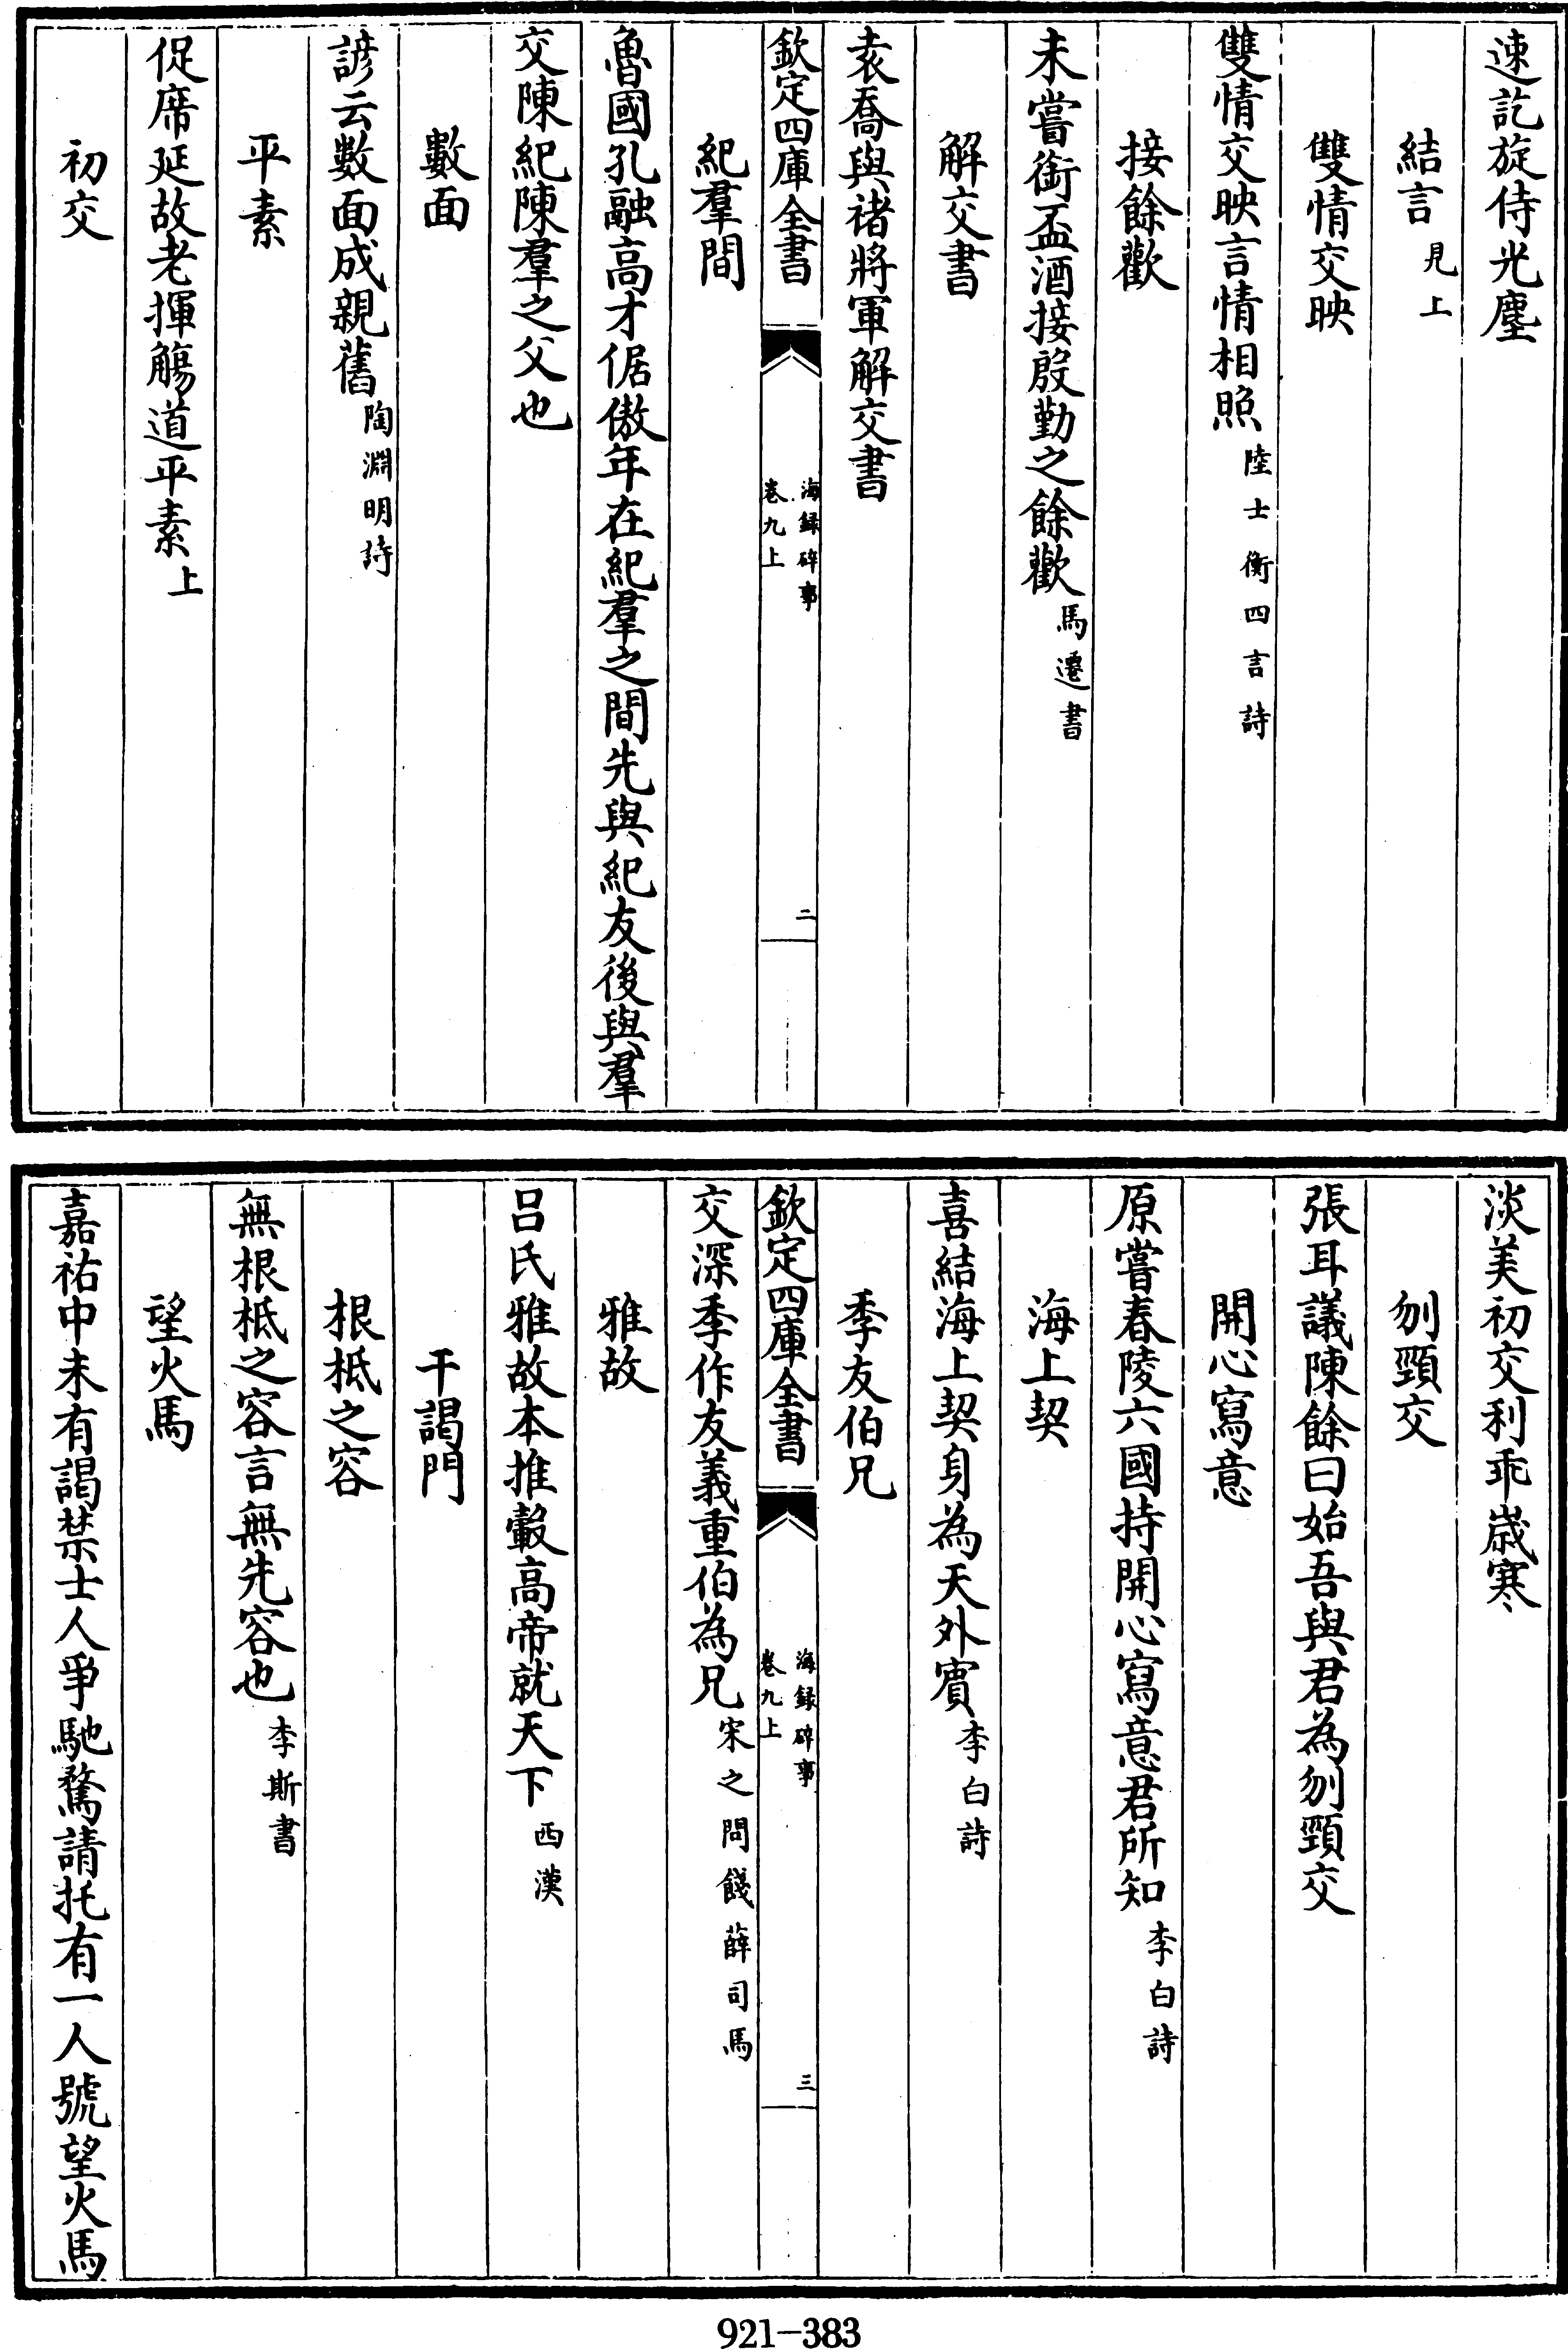 速訖旋侍光塵
結言見上
雙情交映
雙情交映言情相照陸士衡四言詩
接餘歡
未嘗銜盃酒接殷勤之餘歡馬遷書
解交書
袁喬與禇將軍解交書
欽定四庫全書
海録碎事
卷九上
二
紀羣間
魯國孔融高才倨傲年在紀羣之間先與紀友後與羣
交陳紀陳羣之父也
數面
諺云數面成親舊陶淵明詩
平素
促席延故老揮觴道平素上
初交
淡美初交利乖歳寒
刎頸交
張耳議陳餘曰始吾與君為刎頸交
開心寫意
原嘗春陵六國持開心寫意君所知李白詩
海上契
喜結海上契身為天外賔李白詩
季友伯兄
欽定四庫全書
海録碎事
卷九上
三
交深季作友義重伯為兄宋之問餞薛司馬
雅故
吕氏雅故本推轂高帝就天下西漢
干謁門
根柢之容
無根柢之容言無先容也李斯書
望火馬
嘉祐中未有謁禁士人爭馳騖請托有一人號望火馬
921-383